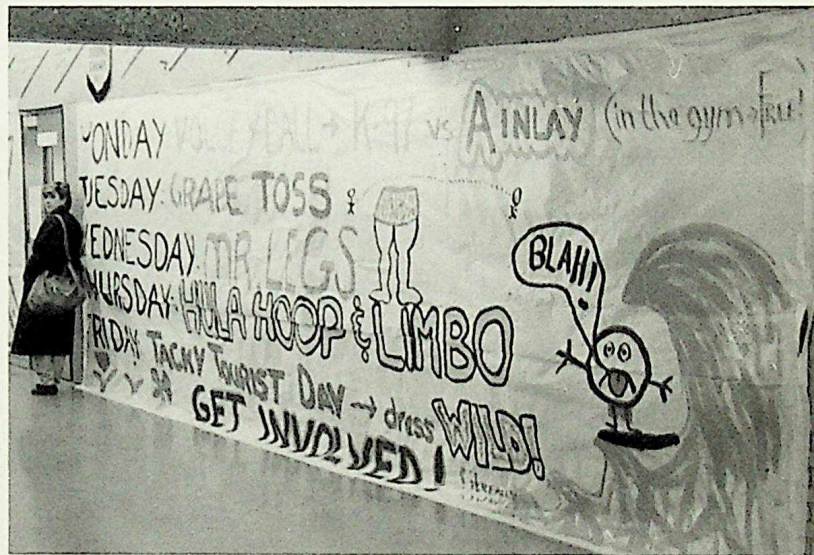 MONDAY VOLLEYBALL → K-97 vs AINLAY (in the gym → Free!)
TUESDAY: GRAPE TOSS
WEDNESDAY: MR. LEGS
THURSDAY: HULA HOOP & LIMBO
FRIDAY TACKY TOURIST DAY → dress WILD!
GET INVOLVED!
BLAH!